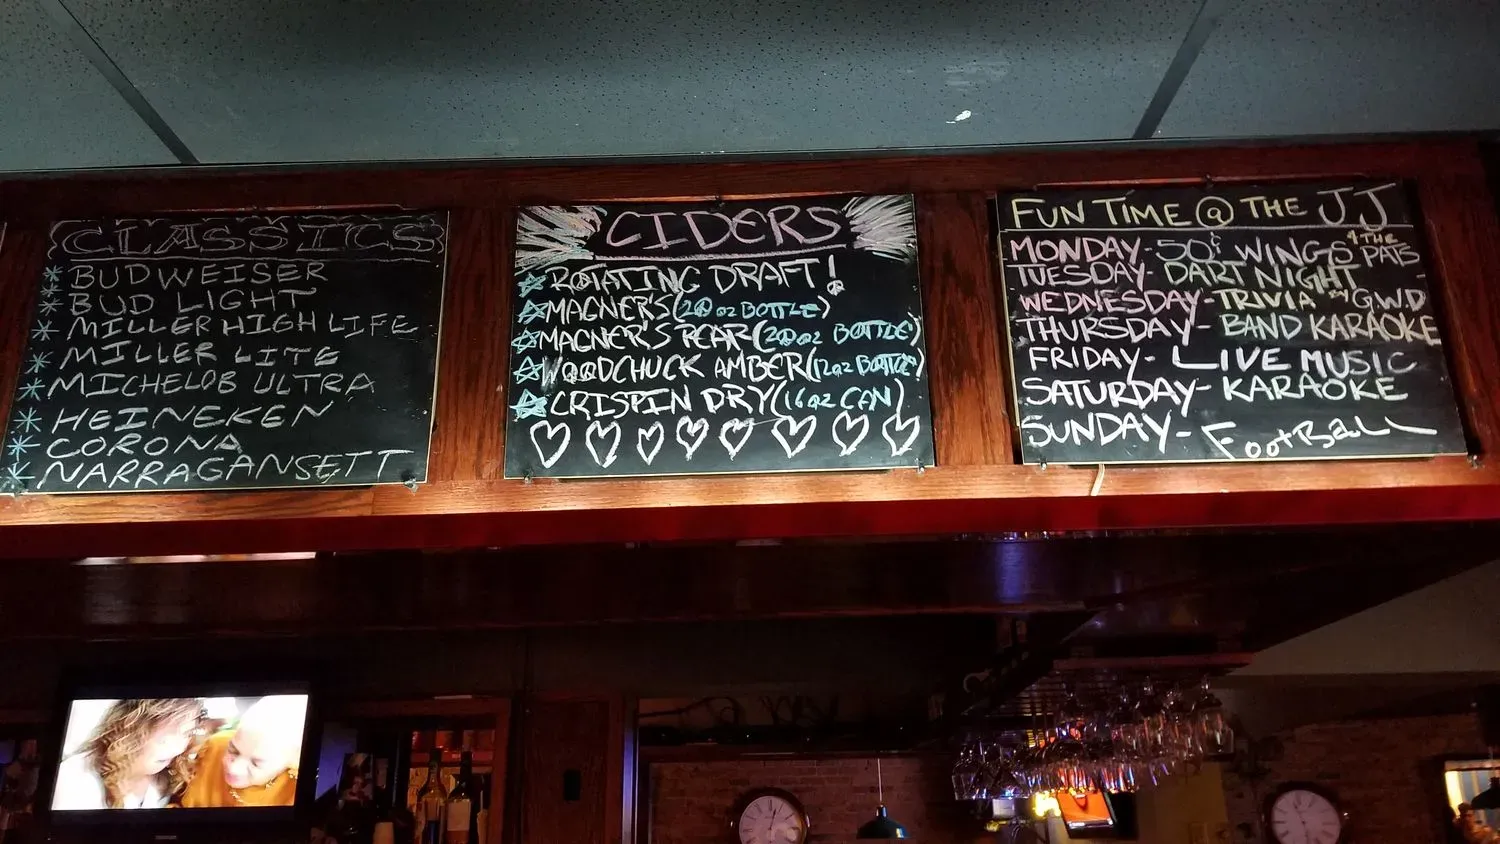 CLASSICS
* BUDWEISER
* BUD LIGHT
* MILLER HIGH LIFE
* MILLER LITE
* MICHELOB ULTRA
* HEINEKEN
* CORONA
* NARRAGANSETT
CIDERS
ROTATING DRAFT!
MAGNER'S (20oz BOTTLE)
MAGNER'S PEAR (20oz BOTTLE)
WOODCHUCK AMBER (12oz BOTTLE)
CRISPIN DRY (16oz CAN)
FUN TIME @ THE JJ
MONDAY - 50¢ WINGS & THE PATS
TUESDAY - DART NIGHT
WEDNESDAY - TRIVIA BY GWD
THURSDAY - BAND KARAOKE
FRIDAY - LIVE MUSIC
SATURDAY - KARAOKE
SUNDAY - FootBaLL